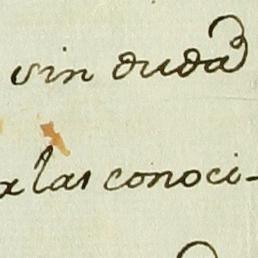 sin duda
a las conoci-